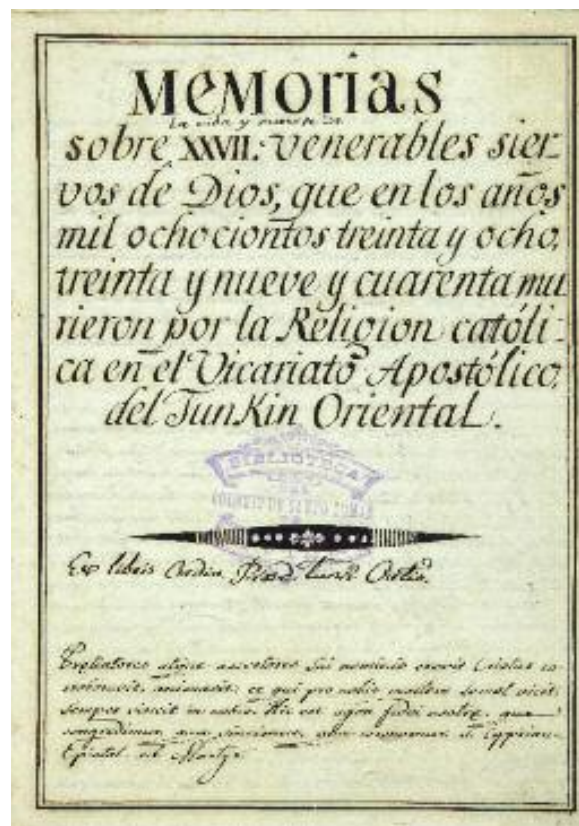 Memorias
la vida y muerte de
sobre XXVII. venerables sier-
vos de Dios, que en los años
mil ochocientos treinta y ocho,
treinta y nueve y cuarenta mu
rieron por la Religion católi-
ca en el Vicariato Apostólico,
del TunKin Oriental.
BIBLIOTECA
DEL
COLEGIO DE SANTO TOMAS
Ex libris Ordin. Præd.
atque sui nominis
et qui pro nobis mortem semel vicit,
semper vincit in nobis. Hic est agon fidei nostræ, qua
congredimur, qua vincimus, qua coronamur. S. Cyprian.
Epist. ad Martyr.